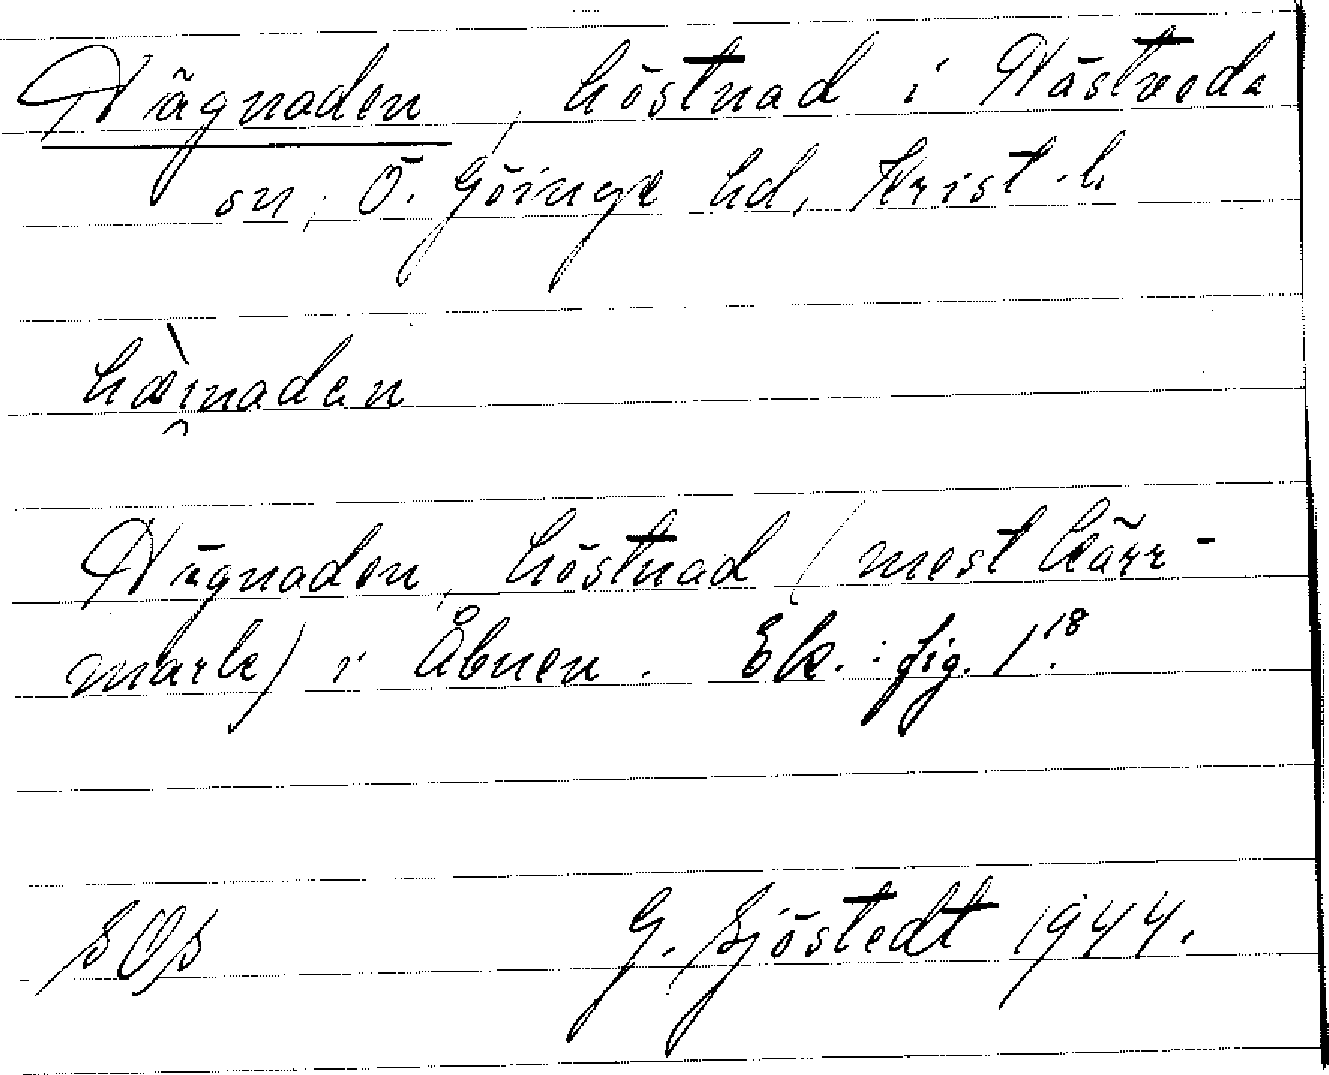 Hägnaden, höstnad i Hästveda
sn, Ö. Göinge hd, Krist. l.
hæi̯naden
Hägnaden, höstnad (mest kärr-
mark) i Åbuen. Ek.: fig. 1.18
SOS
G. Sjöstedt 1944.